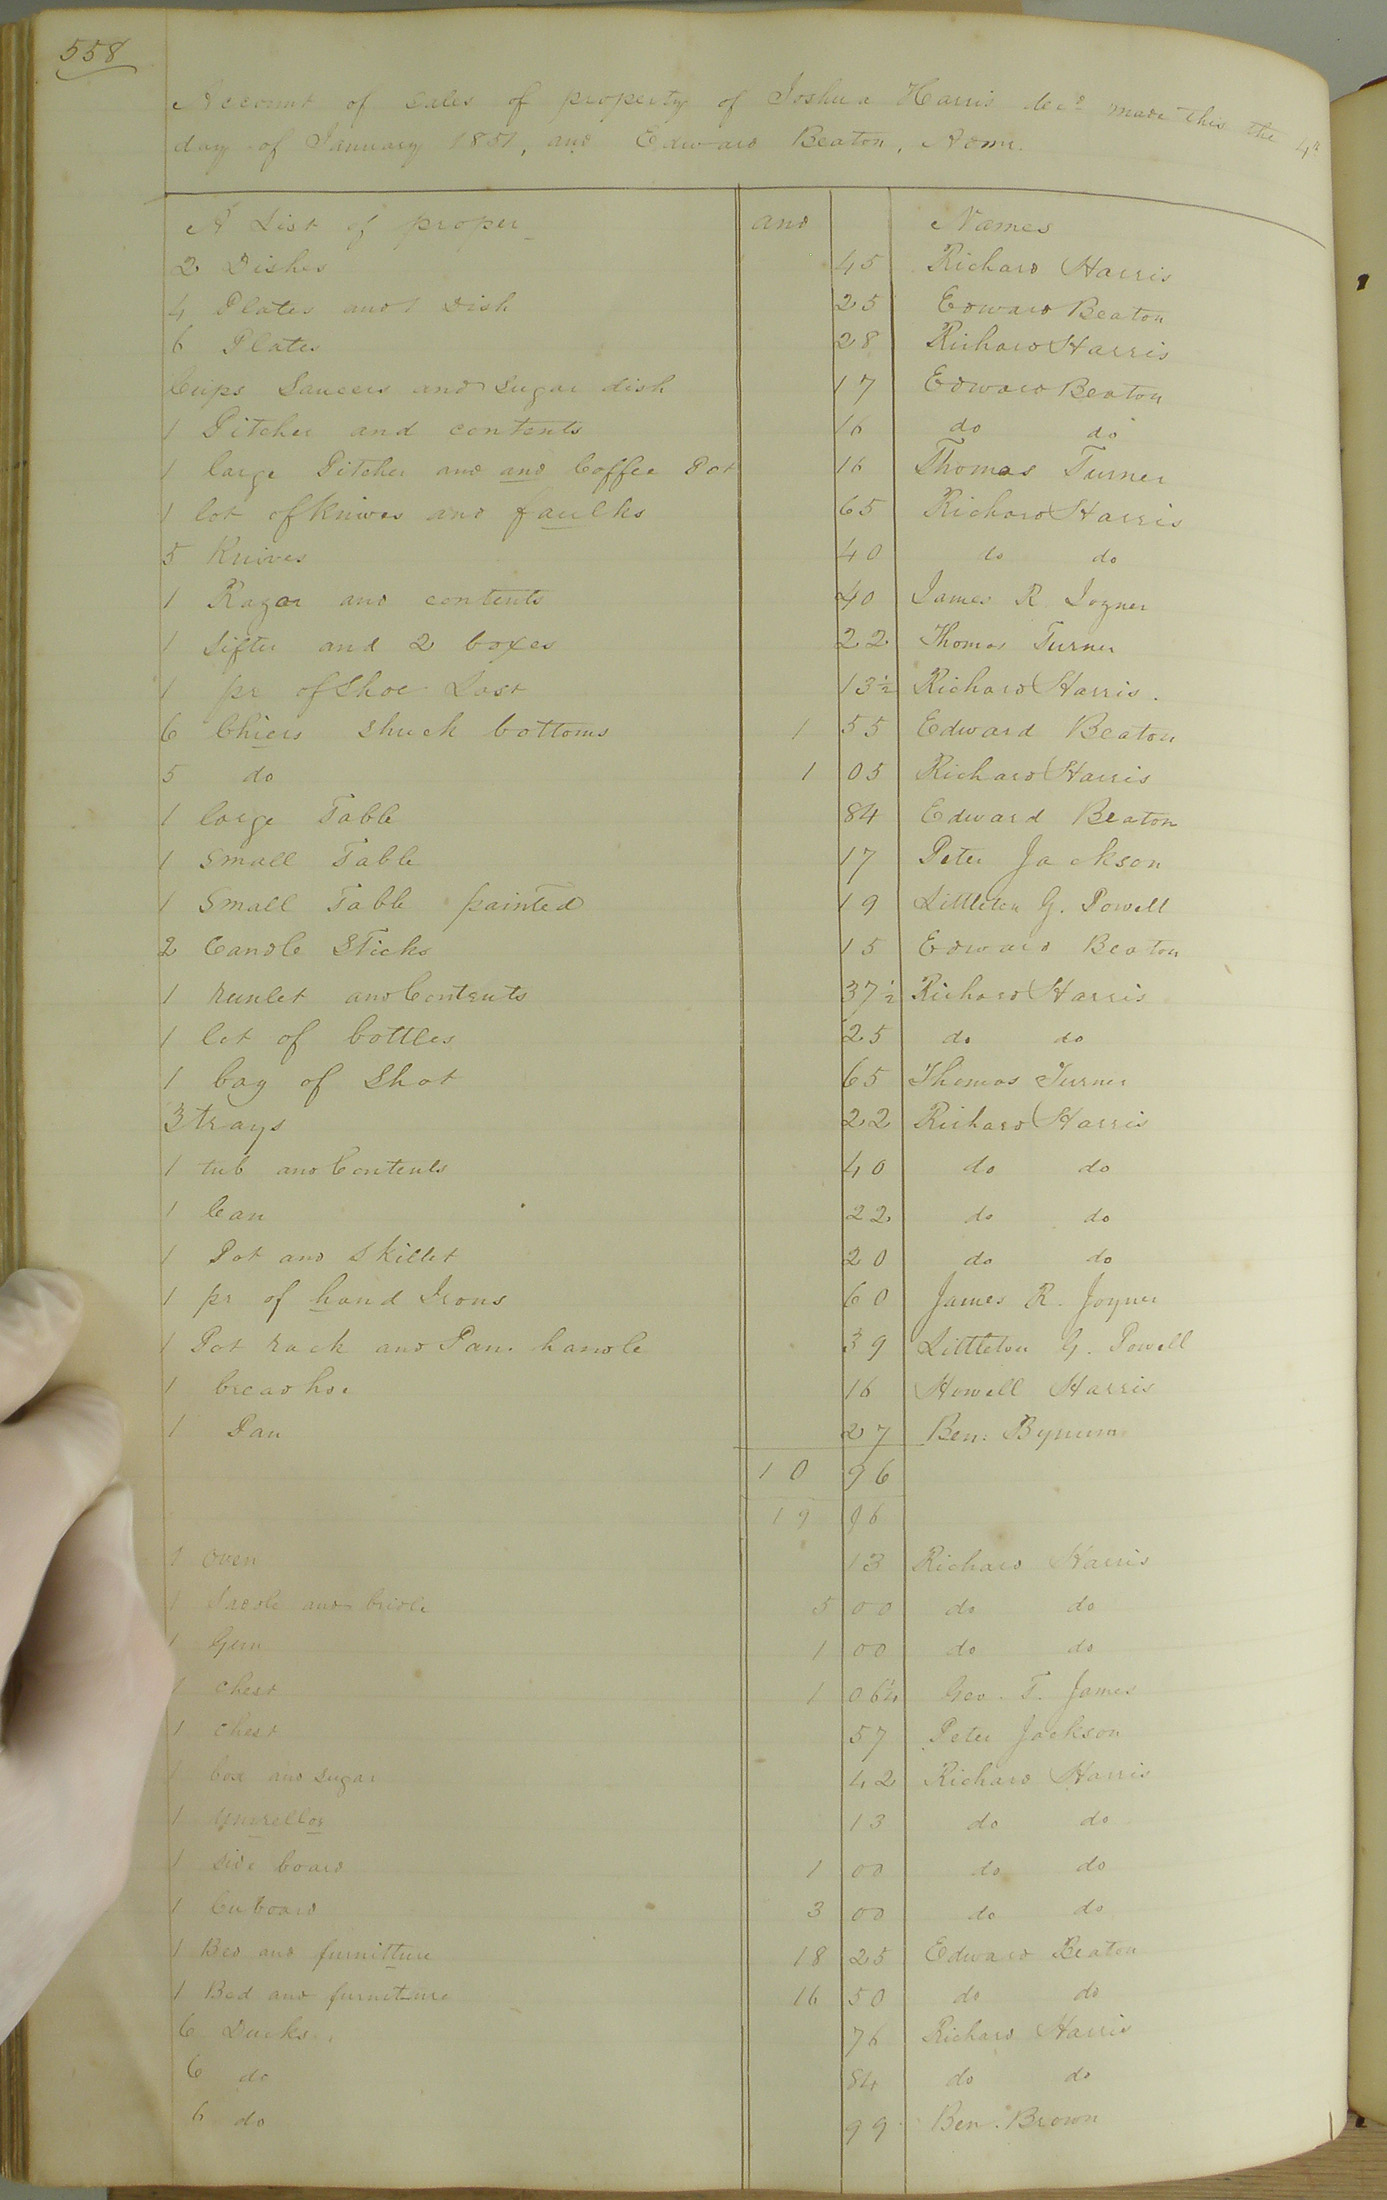 558
Account of Sales of property of Joshua Harris decd made this the 4th
day of January 1851, and Edward Beaton, Admr.
A List of proper and Names
2 Dishes 45 Richard Harris
4 Plates and 1 Dish 25 Edward Beaton
6 Plates 28 Richard Harris
Cups Saucers and Sugar dish 17 Edward Beaton
1 Pitcher and contents 16 do do
1 large Pitcher and and Coffee Pot 16 Thomas Turner
1 lot of Knives and faulks 65 Richard Harris
5 Knives 40 do do
1 Razor and contents 40 James R Joyner
1 Sifter and 2 boxes 22 Thomas Turner
1 pr of Shoe Last 13½ Richard Harris.
6 Chiers Shuck bottoms 1 55 Edward Beaton
5 do 1 05 Richard Harris
1 large Table 84 Edward Beaton
1 Small Table 17 Peter Jackson
1 Small Table painted 19 Littleton G. Powell
2 Candle Sticks 15 Edward Beaton
1 runlet and Contents 37½ Richard Harris
1 lot of bottles 25 do do
1 bag of Shot 65 Thomas Turner
3 trays 22 Richard Harris
1 tub and Contents 40 do do
1 Can 22 do do
1 Pot and Skillet 20 do do
1 pr of hand Irons 60 James R. Joyner
1 Pot rack and Pan handle 39 Littleton G. Powell
1 bread hoe 16 Howell Harris
1 Pan 27 Ben. Bynum
10 96
96
1 Oven 13 Richard Harris
1 Saddle and bridle 5 00 do do
1 Gun 1 00 do do
1 Chest 1 06¼ Geo. T. James
1 Chest 57 Peter Jackson
1 box and Sugar 42 Richard Harris
1 13 do do
1 Side board 1 00 do do
1 Cuboard 3 00 do do
1 Bed and furnitture 18 25 Edward Beaton
1 Bed and furniture 16 50 do do
6 Ducks 76 Richard Harris
6 do 84 do do
6 do 99 Ben. Brown